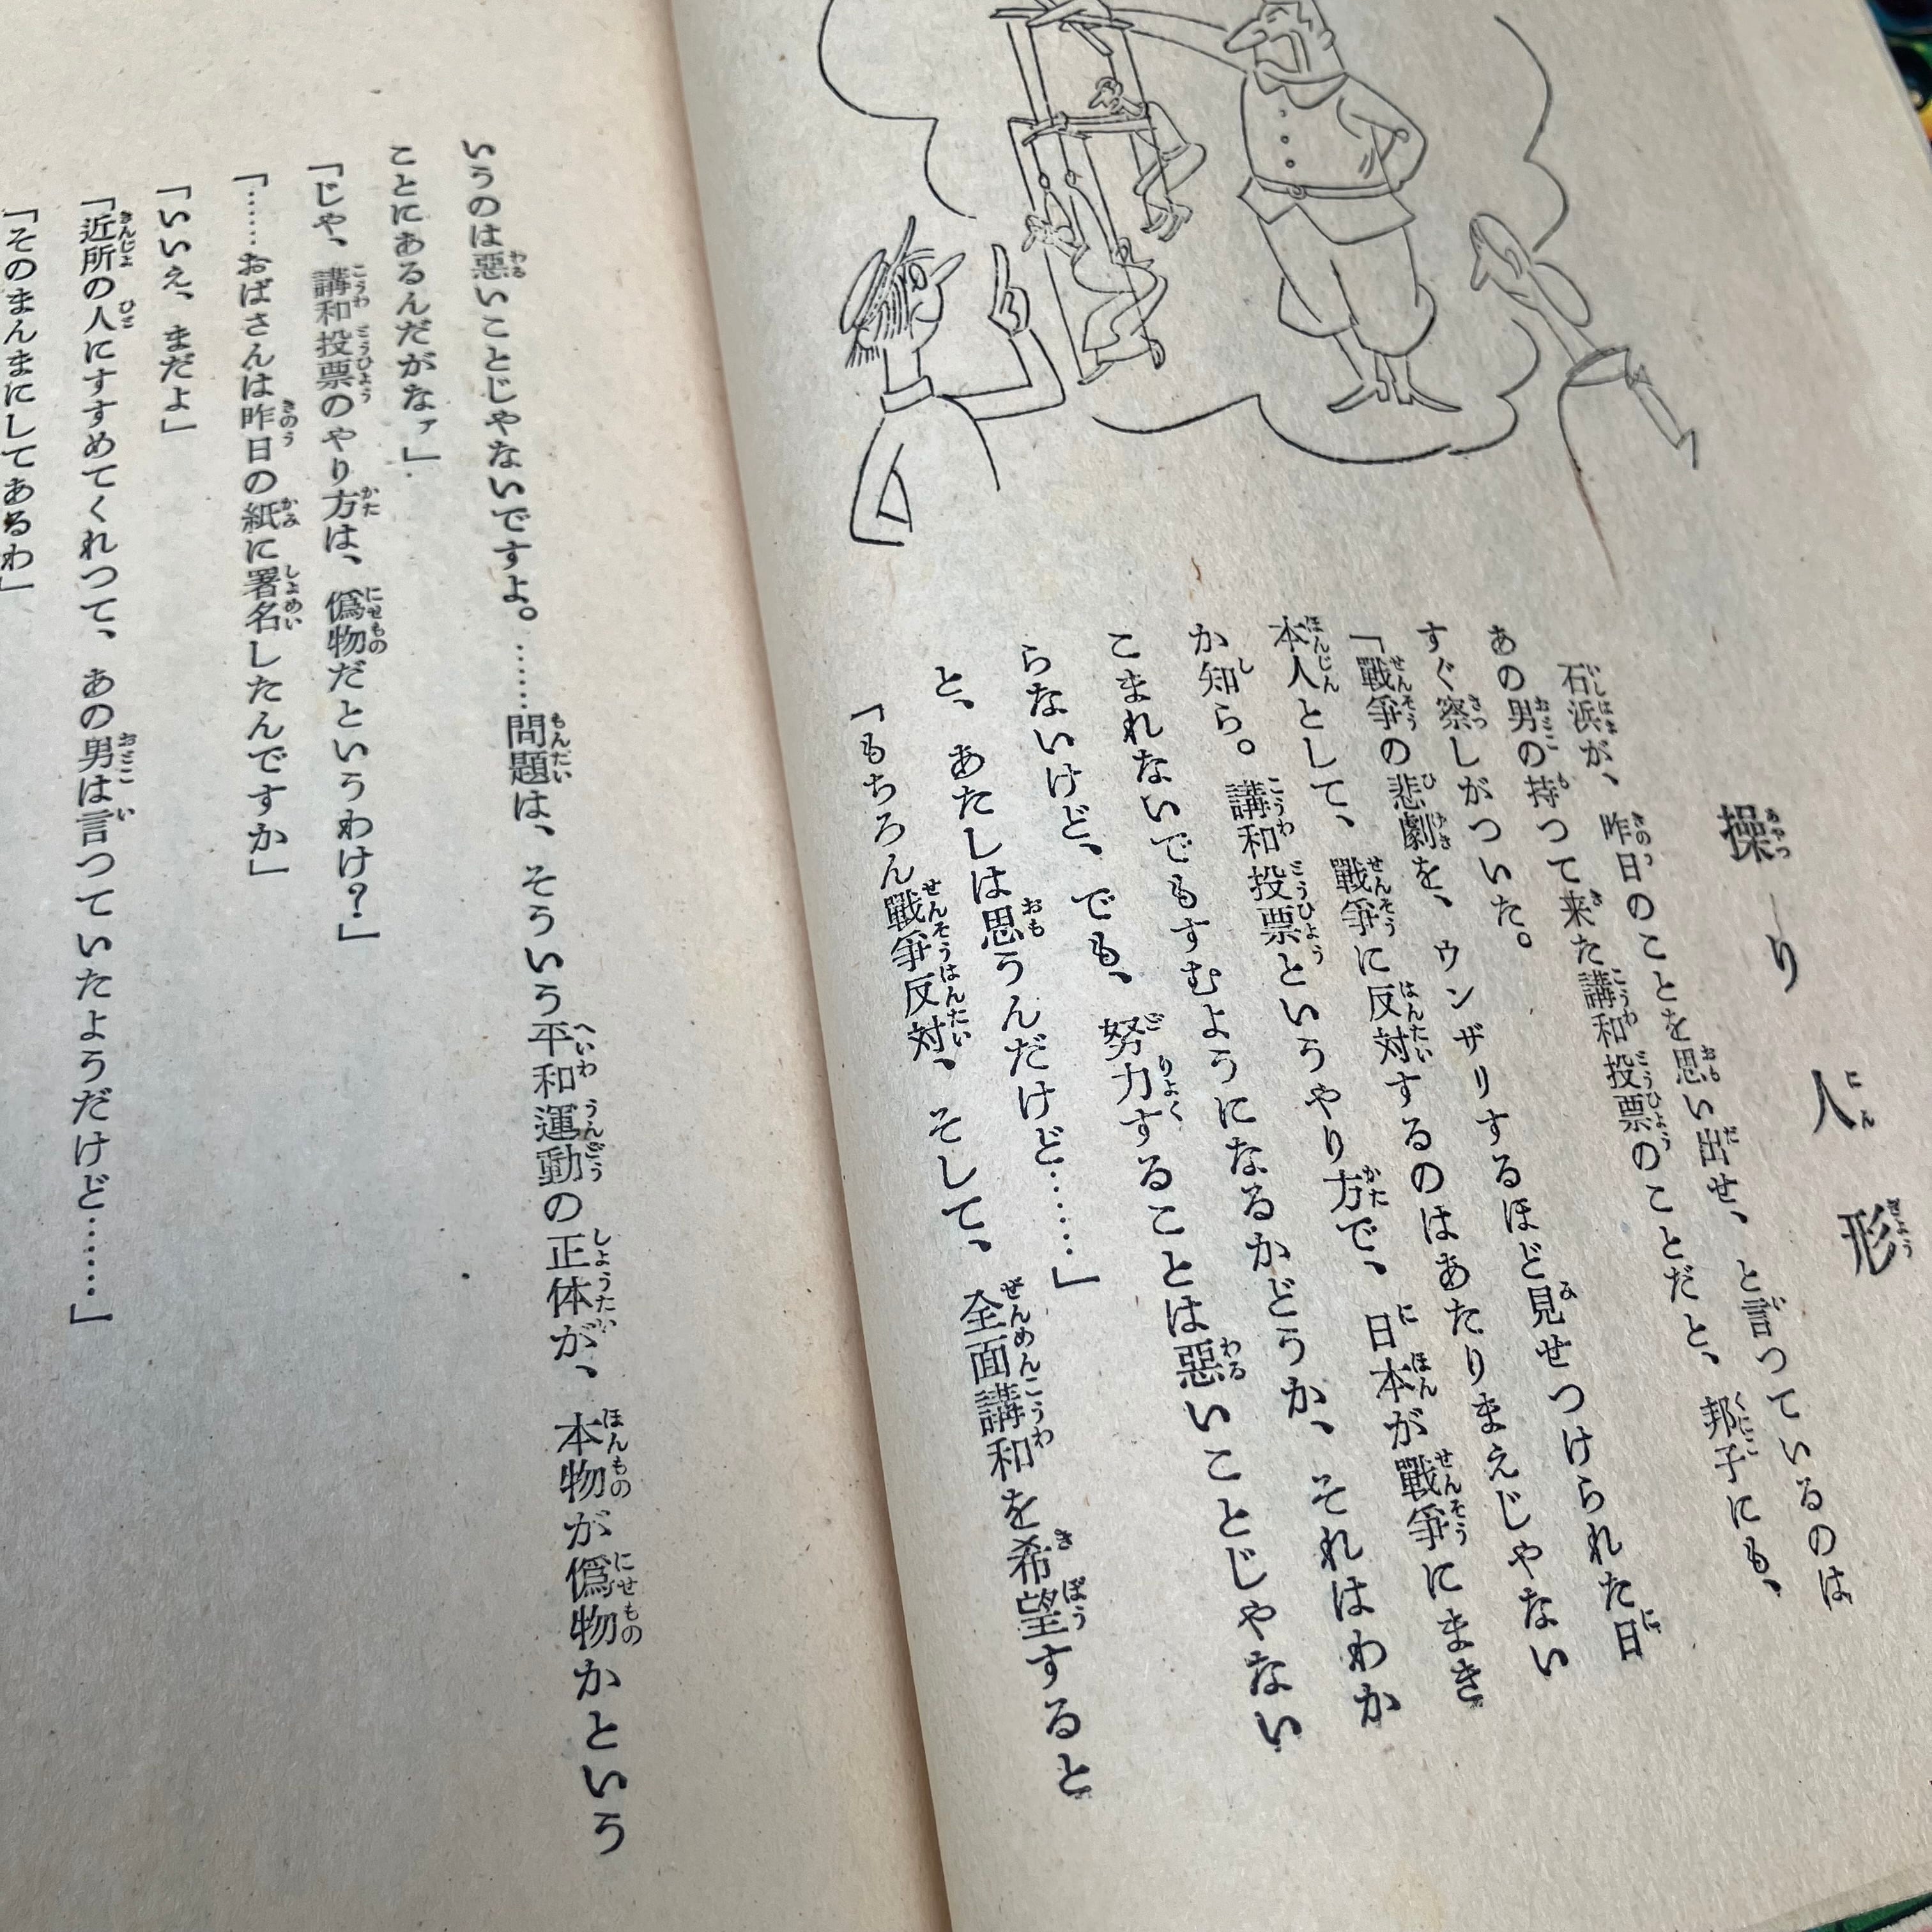 操り人形
石浜が、昨日のことを思い出せ、と言つているのは
あの男の持つて来た講和投票のことだと、邦子にも、
すぐ察しがついた。
「戰爭の悲劇を、ウンザリするほど見せつけられた日
本人として、戰爭に反対するのはあたりまえじやない
か知ら。講和投票というやり方で、日本が戰爭にまき
こまれないでもすむようになるかどうか、それはわか
らないけど、でも、努力することは惡いことじやない
と、あたしは思うんだけど……」
「もちろん戰爭反対、そして、全面講和を希望すると
いうのは惡いことじやないですよ。……問題は、そういう平和運動の正体が、本物が僞物かという
ことにあるんだがなァ」
「じや、講和投票のやり方は、僞物だというわけ？」
「……おばさんは昨日の紙に署名したんですか」
「いいえ、まだよ」
「近所の人にすすめてくれつて、あの男は言つていたようだけど……」
「そのまんまにしてあるわ」